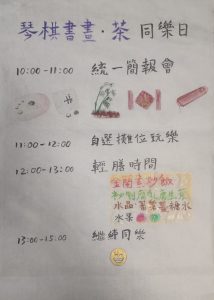 琴棋書畫·茶 同樂日
10:00-11:00 統一簡報會
11:00-12:00 自選攤位玩樂
12:00-13:00 輕膳時間
金蘭素炒飯
水晶
糖水
水果
13:00-15:00 繼續同樂